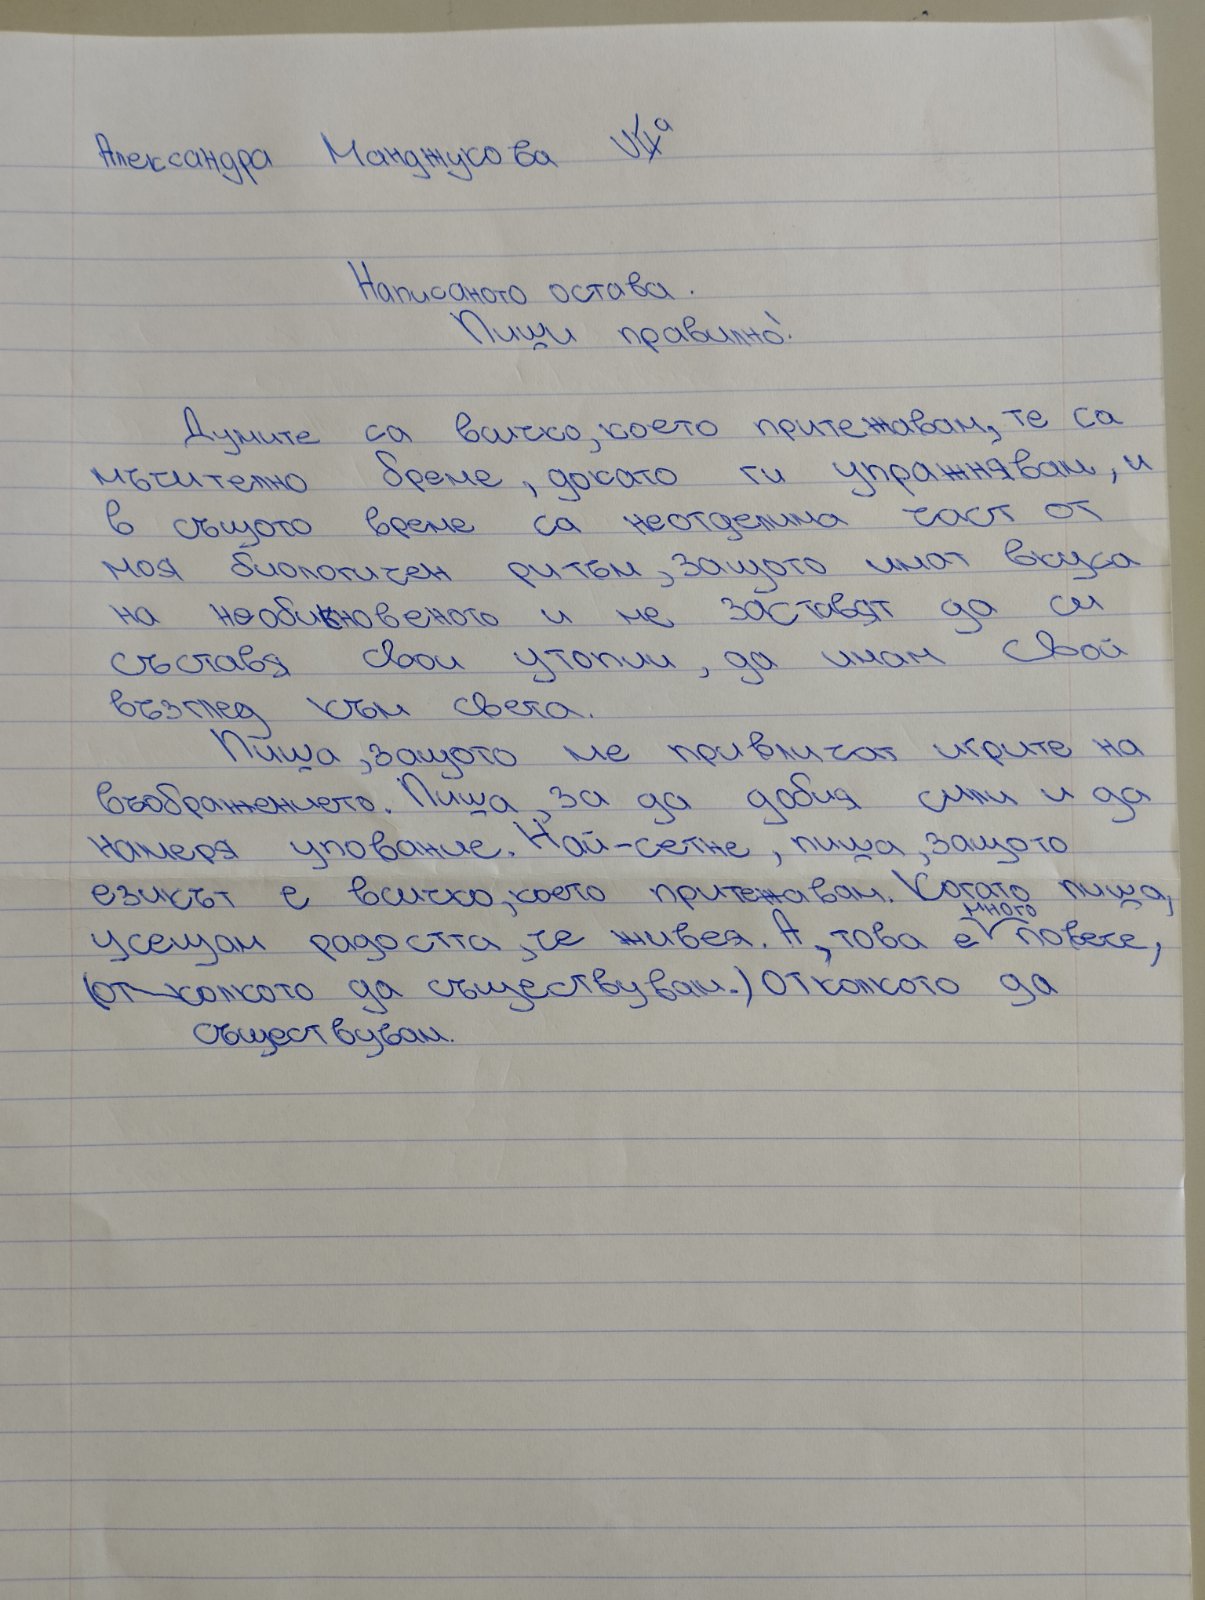 Александра Манджукова
Написаното остава.
Пиши правилно!
Думите са всичко, което притежавам, те са
мъчително бреме, докато ги упражнявам, и
в същото време са неотделима част от
моя биологичен ритъм, защото имат вкуса
на необикновеното и ме заставят да си
съставя свои утопии, да имам свой
възглед към света.
Пиша, защото ме привличат игрите на
въображението. Пиша, за да добия сили и да
намеря упование. Най-сетне, пиша, защото
езикът е всичко, което притежавам. Когато пиша,
много
усещам радостта, че живея. А, това е повече,
(от колкото да съществувам.) Отколкото да
съществувам.